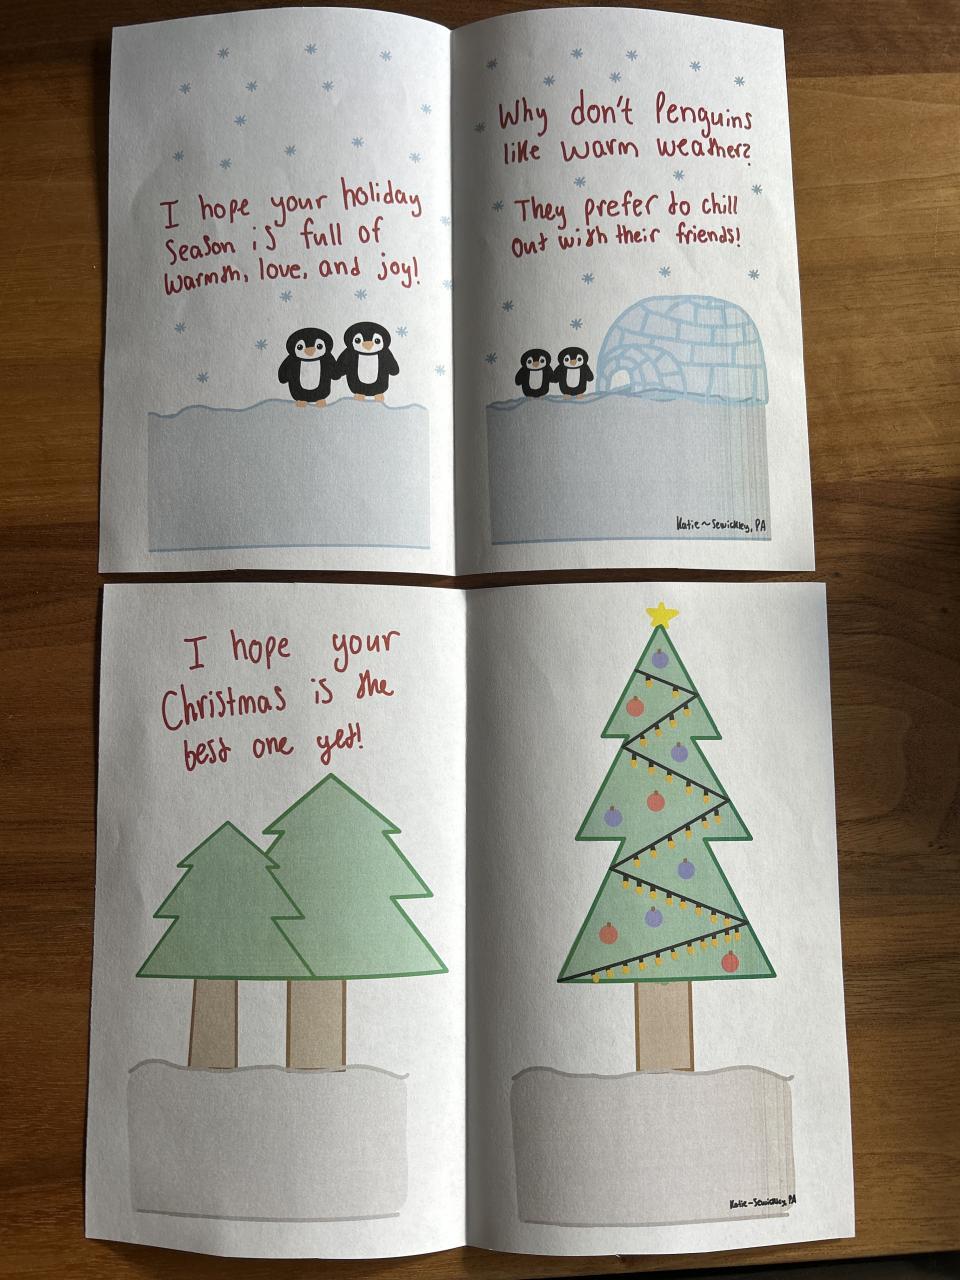 I hope your holiday
season is full of
warmth, love, and joy!
Why don't Penguins
like warm weather?
They prefer to chill
out with their friends!
Katie~Sewickley, PA
I hope your
Christmas is the
best one yet!
Katie~Sewickley, PA